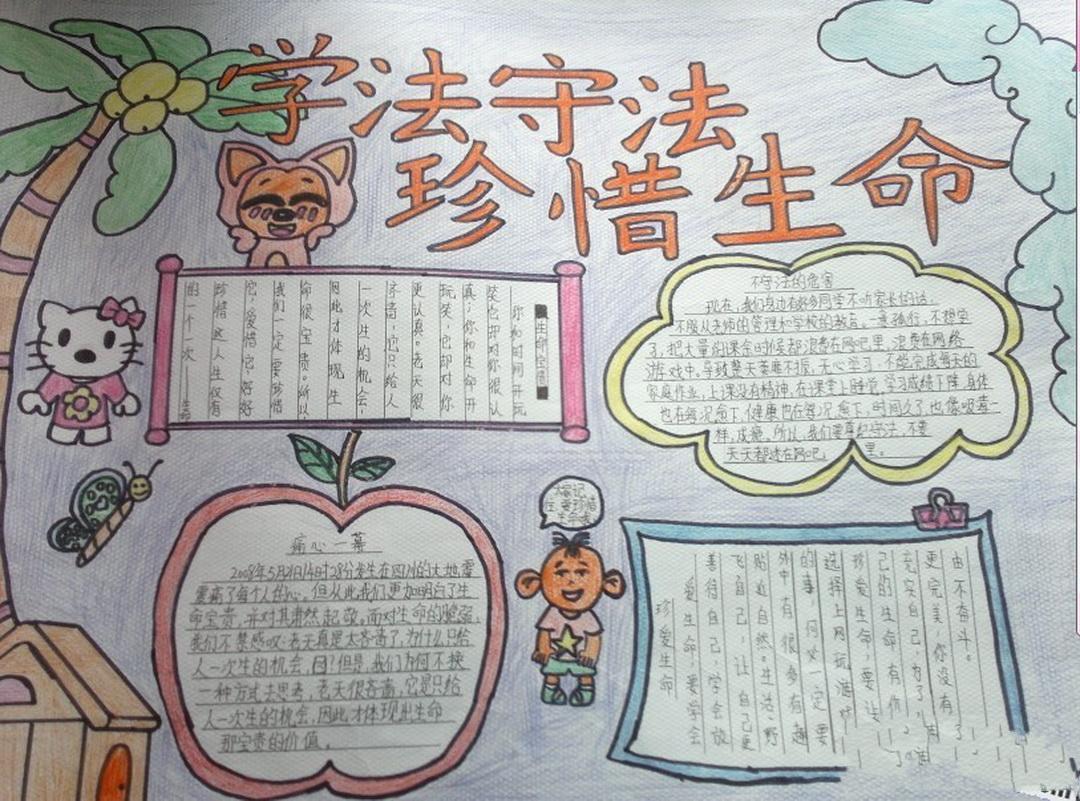 学法守法
珍惜生命
生命宝贵
你和时间开玩
笑它却对你很认
真,你和生命开
玩笑,它却对你
更认真。老天很
吝啬,它只给人
一次生的机会,
因此才体现生
命很宝贵。所以,
我们一定要珍惜
它,爱惜它,好好
珍惜这人生仅有
的一个一次——生命
不守法的危害
现在,我们身边有好多同学不听家长的话,
不服从老师的管理和学校的教育。一意孤行,不想学
了,把大量的课余时候都浪费在网吧里,浪费在网络
游戏中,导致整天萎靡不振,无心学习,不能完成每天的
家庭作业,上课没有精神,在课堂上睡觉,学习成绩下降,身体
也在每况愈下,健康也在每况愈下,时间久了,也像吸毒一
样,成瘾。所以,我们要遵纪守法,不要
天天都迷在网吧 里。
痛心一幕
2008年5月21日14时28分发生在四川的大地震
震痛了每个人的心。但从此我们更加明白了生
命宝贵,并对其肃然起敬。面对生命的脆弱,
我们不禁感叹:老天真是太吝啬了,为什么只给
人一次生的机会 因?但是,我们为何不换
一种方式去思考,老天很吝啬,它是只给
人一次生的机会,因此才体现出生命
那宝贵的价值。
大家记
住,要珍惜
生命哦
珍爱生命
爱生命,要学会
善待自己,学会放
飞自己,让自己更
贴近自然。生活野
外中有很多有趣
的事,何必一定要
选择上网玩游戏
珍爱生命,要让
己的生命有价
充实自己,为了
更完美,你没有
由不奋斗。